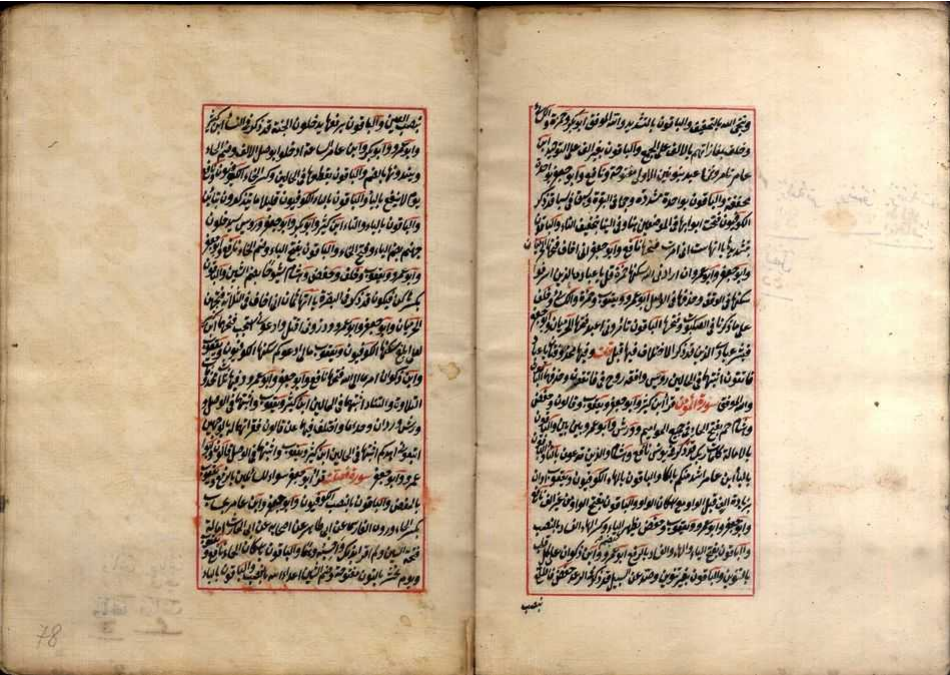 وينجي الله بالتخفيف والباقون بالتشديد والله الموفق ابو بكر وحمزة والكسائي
وخلف بمفازاتهم بالالف على الجمع والباقون بغير الف على التوحيد ابن
عامر تأمرونني اعبد بنونين الاولى مفتوحة ونافع وابو جعفر بواحدة
مخففة والباقون بواحدة مشددة وجيء في البقرة وسيق قد ذكر
الكوفيون فتحت ابوابها في الموضعين هنا وفي النبا بتخفيف التاء والباقون
بتشديدها ياآتها ست اني امرت فتحها نافع وابو جعفر اني اخاف فتحها الحرميان
وابو جعفر وابو عمرو ان ارادني الله سكنها حمزة قل يا عبادي الذين اسرفوا
سكنها في الوقف وحذفها في الوصل ابو عمرو ويعقوب وحمزة والكسائي وخلف
على ما ذكرنا في العنكبوت وفتحها الباقون تأمروني اعبد فتحها الحرميان وابو جعفر
فبشر عباد الذين قد ذكر الاختلاف فيها قبل قلت وفيها محذوفة يا عباد
فاتقون اثبتها في الحالين رويس وافقه روح في فاتقون وحذفها الباقون
والله الموفق سورة المؤمن قرأ ابن كثير وابو جعفر ويعقوب وقالون وحفص
وهشام حم بفتح الحاء في جميع الحواميم وورش وابو عمرو بين بين والباقون
بالامالة كلمت ربك قد ذكر في يونس نافع وهشام والذين تدعون بالتاء والباقون
بالياء ابن عامر اشد منكم بالكاف والباقون بالهاء الكوفيون ويعقوب او ان
بزيادة الف قبل الواو مع اسكان الواو والباقون بفتح الواو من غير الف نافع
وابو جعفر وابو عمرو ويعقوب وحفص يظهر بضم الياء وكسر الهاء الفساد بالنصب
والباقون بفتح الياء والهاء والفساد بالرفع ابو عمرو وابن ذكوان على كل قلب
بالتنوين والباقون بغير تنوين وصد عن السبيل قد ذكر في الرعد حفص فاطلع
بنصب
بنصب العين والباقون برفعها يدخلون الجنة قد ذكر في النساء ابن كثير
وابو عمرو وابو بكر وابن عامر الساعة ادخلوا بوصل الالف وضم الخاء
ويبتدونها بالضم والباقون بقطعها في الحالين وكسر الخاء الكوفيون ونافع
يوم لا ينفع بالياء والباقون بالتاء الكوفيون قليلا ما تتذكرون بتاءين
والباقون بالياء والتاء ابن كثير وابو بكر وابو جعفر ورويس سيدخلون
جهنم بضم الياء وفتح الخاء والباقون بفتح الياء وضم الخاء نافع وابو جعفر
وابو عمرو ويعقوب وخلف وحفص وهشام شيوخا بضم الشين والباقون
بكسرها كن فيكون قد ذكر في البقرة ياآتها ثمان اني اخاف في الثلاثة فتحهن
الحرميان وابو جعفر وابو عمرو ذروني اقتل وادعوني استجب فتحهما ابن كثير
لعلي ابلغ سكنها الكوفيون ويعقوب مالي ادعوكم سكنها الكوفيون ويعقوب
وابن ذكوان امري الى الله فتحها نافع وابو جعفر وابو عمرو وفيها ثلاث محذوفات
التلاق والتناد اثبتهما في الحالين ابن كثير ويعقوب واثبتهما في الوصل
ورش وابن وردان وحدهما واختلف فيهما عن قالون
اتبعوني اهدكم اثبتها في الحالين ابن كثير ويعقوب واثبتها في الوصل قالون وابو
عمرو وابو جعفر سورة فصلت قرأ ابو جعفر سواء للسائلين بالرفع ويعقوب
بالخفض والباقون بالنصب الكوفيون وابو جعفر وابن عامر نحسات
بكسر الحاء وروى الفارسي عن ابي طاهر عن اصحابه عن ابي الحارث امالة
فتحة السين ولم اقرا بذلك واحسبه وهما والباقون باسكان الحاء نافع ويعقوب
ويوم نحشر بالنون مفتوحة وضم الشين اعداء الله بالنصب والباقون بالياء
78